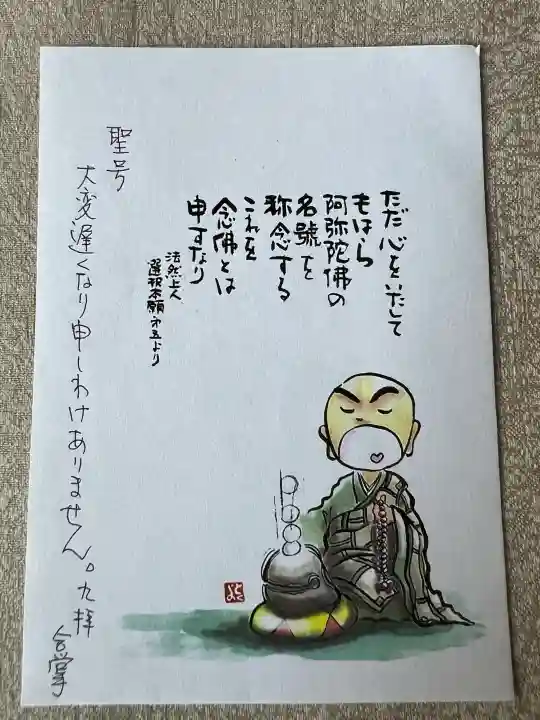 ただ心をいたして
もはら
阿弥陀佛の
名號を
称念する
これを
念佛とは
申すなり
法然上人
選択本願
聖号
大変遅くなり申しわけありません。九拝
合掌